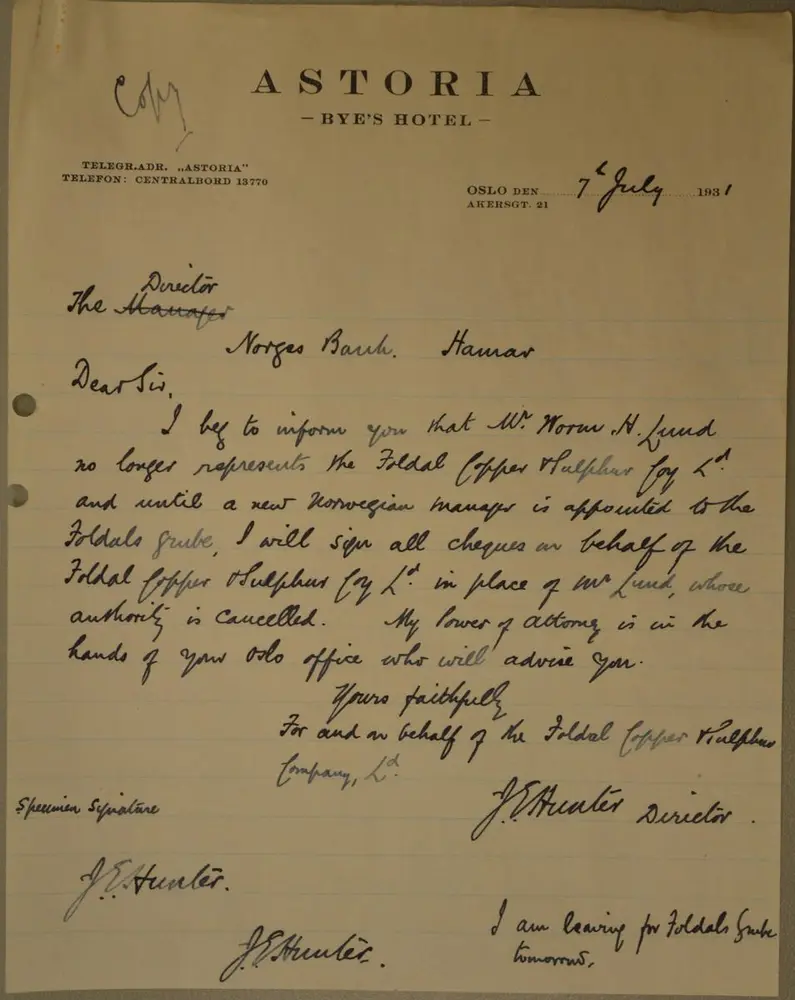 Copy
ASTORIA
- BYE'S HOTEL -
TELEGR.ADR. „ASTORIA"
TELEFON: CENTRALBORD 13770
OSLO DEN 7th July 1931
AKERSGT. 21
Director
The Manager
Norges Bank. Hamar
Dear Sir,
I beg to inform you that Mr Worm H. Lund
no longer represents the Foldal Copper & Sulphur Coy Ld.
and until a new Norwegian manager is appointed to the
Foldals Grube, I will sign all cheques on behalf of the
Foldal Copper & Sulphur Coy Ld. in place of Mr Lund, whose
authority is cancelled. My Power of Attorney is in the
hands of your Oslo office who will advise you.
Yours faithfully
For and on behalf of the Foldal Copper & Sulphur
Company, Ld.
J.E. Hunter Director.
Specimen Signature
J.E. Hunter.
J.E. Hunter.
I am leaving for Foldals Grube
tomorrow.